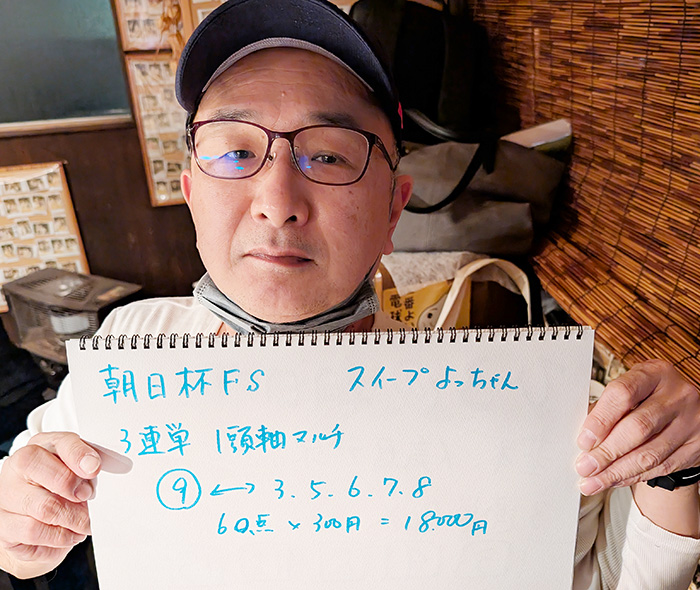 朝日杯FS スイープよっちゃん
3連単 1頭軸マルチ
⑨ ←→ 3.5.6.7.8
60点 × 300円 = 18.000円